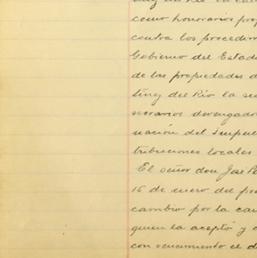 como honorarios pro
contra los procedim
Gobierno del Estad
de las propiedades d
ting del Río la se
norarios devengado
nación del Impue
tribuciones locales
El señor don José P
16 de enero del pre
cambio por la can
quien la aceptó y
con vencimiento el d